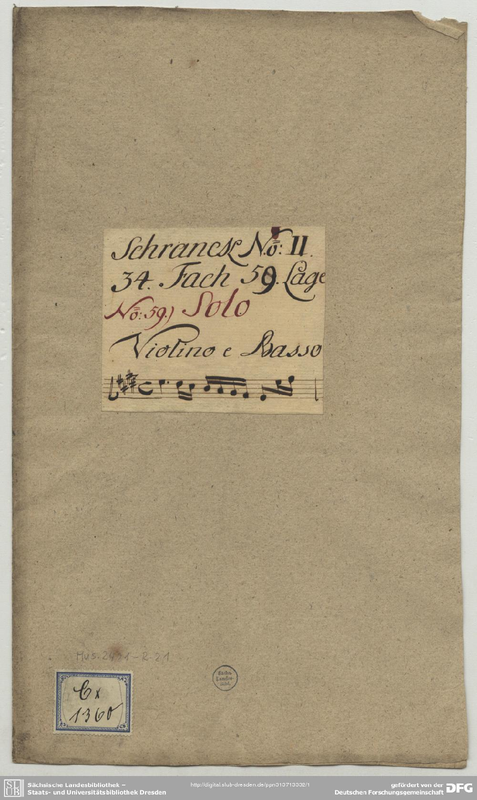 Schranck No: II.
34. Fach 59. Lage
No: 59.) Solo
Violino e Basso
Cx
1360
Sächsische Landesbibliothek –
Staats- und Universitätsbibliothek Dresden
gefördert von der
Deutschen Forschungsgemeinschaft
DFG